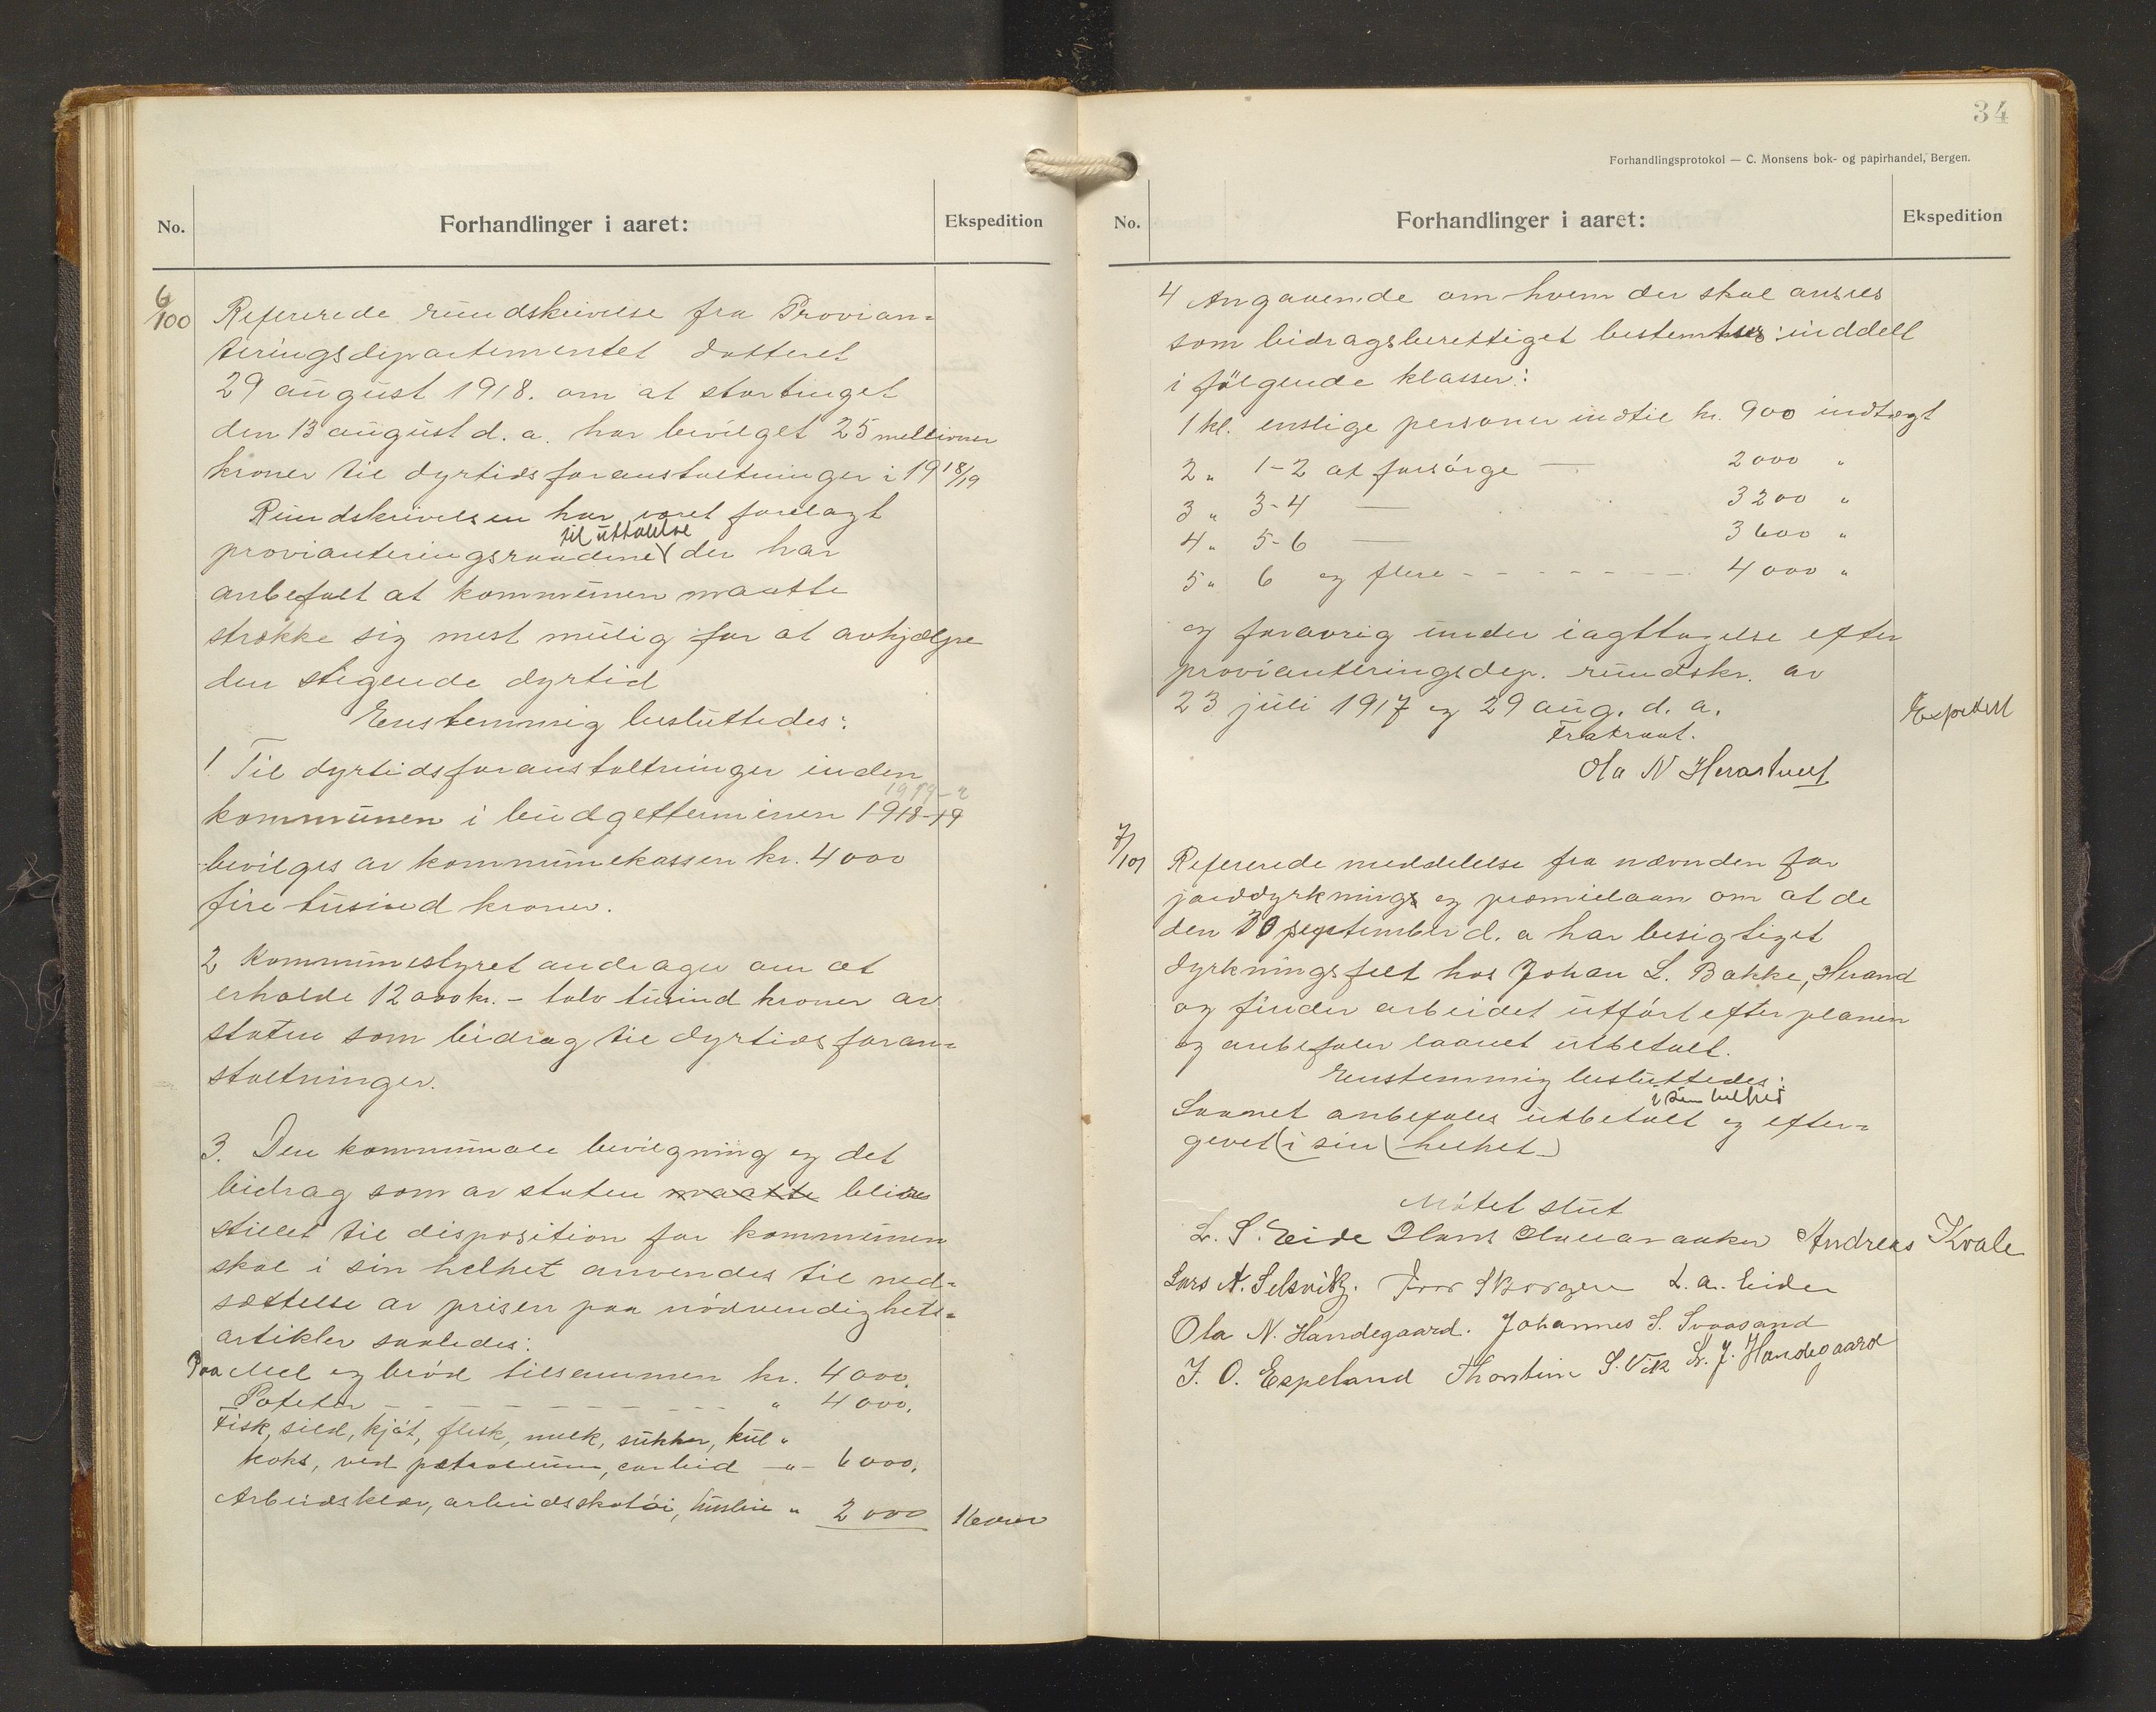 No.
Forhandlinger i aaret:
Ekspedition
6/100
Refererede rundskrivelse fra Provian=
teringsdepartementet datteret
29 august 1918. om at stortinget
den 13 august d. a. har bevilget 25 millioner
kroner til dyrtidsforanstaltninger i 1918/19
Rundskrivelsen har været forelagt
til uttalelse
provianteringsraadene der har
anbefalt at kommunen maatte
strække sig mest mulig for at avhjælpe
den stigende dyrtid
Enstemmig besluttedes:
1 Til dyrtidsforanstaltninger inden
kommunen i budgetterminen 1918-19
bevilges av kommunekassen kr. 4000
fire tusind kroner.
2 Kommunestyret andrager om at
erholde 12000 kr. - tolv tusind kroner av
staten som bidrag til dyrtidsforan=
staltninger.
3. Den kommunale bevilgning og det
bidrag som av staten maatte blives
stillet til disposition for kommunen
skal i sin helhet anvendes til ned=
sættelse av prisen paa nødvendighets=
artikler saaledes:
Paa Mel og brød tilsammen kr. 4000.
Poteter - - - - - - - - " 4000.
Fisk, sild, kjøt, flesk, melk, sukker, kul "
koks, ved petroleum, carbid -"- 6000.
Arbeidsklær, arbeidsskotøi, huslie " 2000
16000
34
Forhandlingsprotokol — C. Monsens bok- og papirhandel, Bergen.
No.
Forhandlinger i aaret:
Ekspedition
4 Angaaende om hvem der skal ansees
som bidragsberettiget bestemtes: inddelt
i følgende klasser:
1 kl. enslige personer indtil kr. 900 indtægt
2 " 1-2 at forsörge — 2000 "
3 " 3-4 — 3200 "
4 " 5-6 — 3600 "
5 " 6 og flere - - - - - - 4000 "
og forøvrig under iagttagelse efter
provianteringsdep. rundskr. av
23 juli 1917 og 29 aug. d. a.
Expedert
Fratraat.
Ola N Herastveit
7/101
Refererede meddelelse fra nævnden for
jorddyrknings og præmielaan om at de
den 30 september d. a har besigtiget
dyrkningsfelt hos Johan L. Bakke, Herand
og finder arbeidet utført efter planen
og anbefaler laanet utbetalt.
Enstemmig besluttedes:
i sin helhet
Laanet anbefales utbetalt og efter=
gevet (i sin helhet)
Møtet slut
L. S. Eide Andreas Kvale
Lars N. Selsvik. L. a. Eide
Ola N. Handegaard. Johannes S. Svaasand
J. O. Espeland Thorstein S. Vik L. J. Handegaard